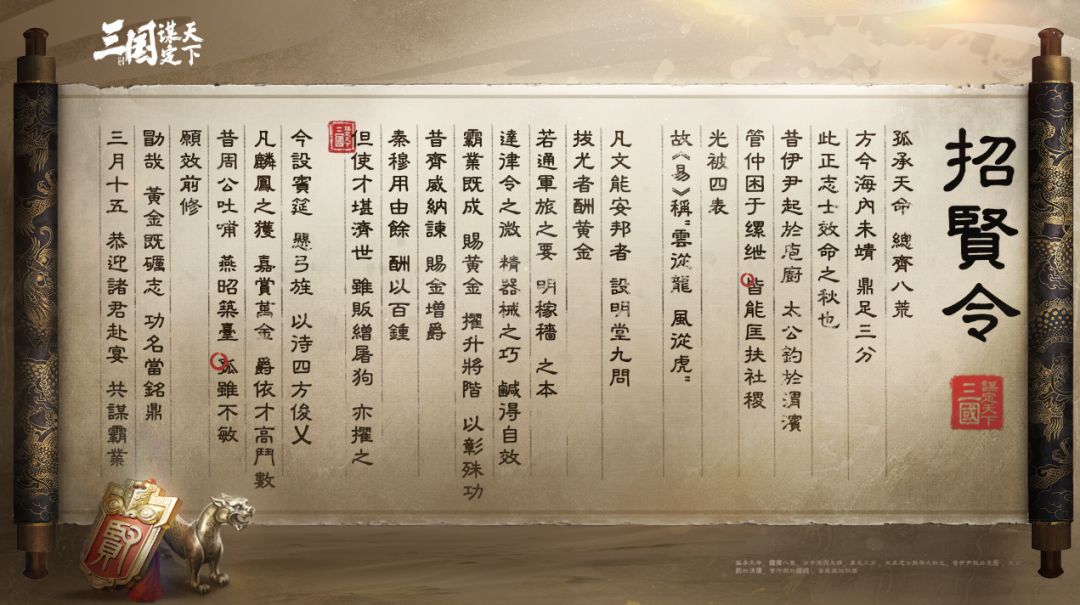 三国
谋定天下
招賢令
三國
謀定天下
孤承天命 總齊八荒
方今海內未靖 鼎足三分
此正志士效命之秋也
昔伊尹起於庖廚 太公釣於渭濱
管仲困于缧绁 皆能匡扶社稷
光被四表
故《易》稱"雲從龍 風從虎"
凡文能安邦者 設明堂九問
拔尤者酬黃金
若通軍旅之要 明稼穡之本
達律令之微 精器械之巧 鹹得自效
霸業既成 賜黃金 擢升將階 以彰殊功
昔齊威納諫 賜金增爵
秦穆用由餘 酬以百鍾
但使才堪濟世 雖販繒屠狗 亦擢之
今設賓筵 懸弓旌 以待四方俊乂
凡麟鳳之獲 嘉賞萬金 爵依才高鬥數
昔周公吐哺 燕昭築臺 孤雖不敏
願效前修
勖哉 黃金既礪志 功名當銘鼎
三月十五 恭迎諸君赴宴 共謀霸業
謀定天下
三國
賢